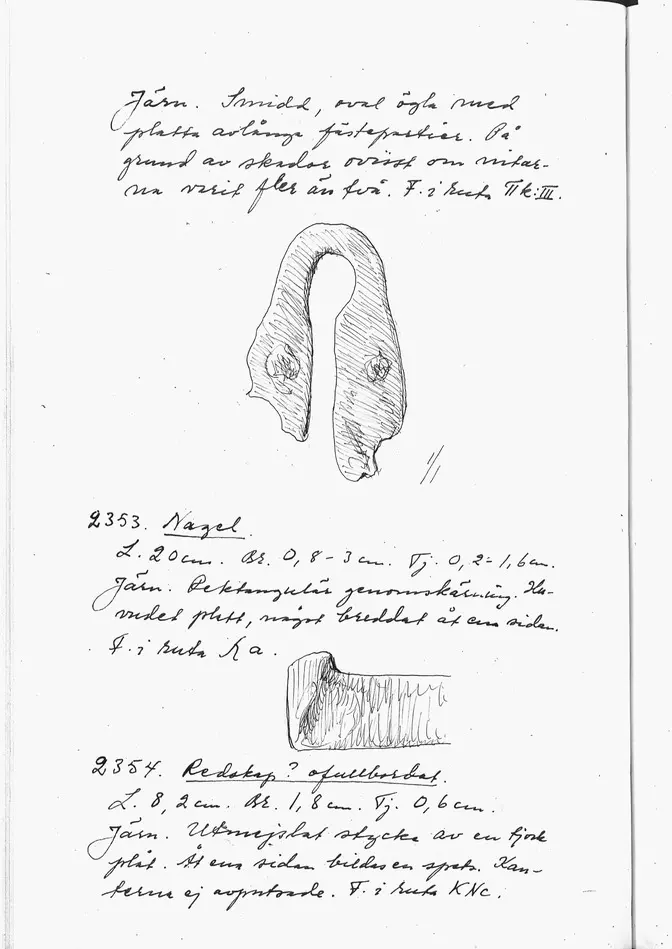 Järn. Smidd, oval ögla med
platta avlånga fästepartier. På
grund av skador ovisst om nitar-
na varit fler än två. F. i ruta II k:III.
1/1
2353. Nagel.
L. 20 cm. Br. 0,8-3 cm. Tj. 0,2-1,6 cm.
Järn. Rektangulär genomskärning. Hu-
vudet platt, något breddat åt ena sidan.
F. i ruta K a.
2354. Redskap? ofullbordat.
L. 8,2 cm. Br. 1,8 cm. Tj. 0,6 cm.
Järn. Utmejslat stycke av en tjock
plåt. Åt ena sidan bildas en spets. Kan-
terna ej avputsade. F. i ruta KNc.